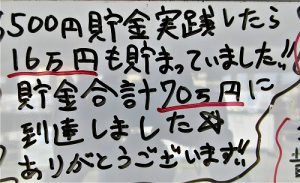 500円貯金実践したら
16万円も貯まっていました!!
貯金合計70万円に
到達しました☆
ありがとうございます!!